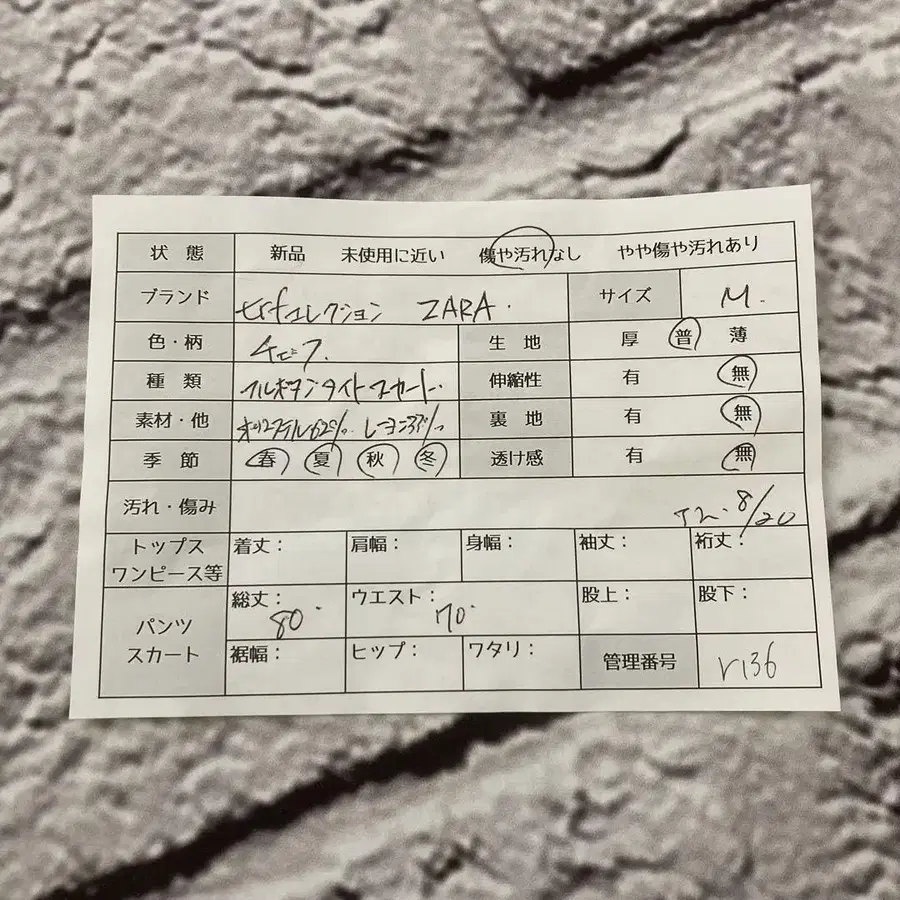 状 態 新品 未使用に近い 傷や汚れなし やや傷や汚れあり
ブランド コレクション ZARA. サイズ M.
色・柄 生 地 厚 普 薄
種 類 フルボタンタイトスカート. 伸縮性 有 無
素材・他 ポリエステル62% レーヨン 裏 地 有 無
季 節 春 夏 秋 冬 透け感 有 無
汚れ・傷み 8/20
トップス
ワンピース等 着丈: 肩幅: 身幅: 袖丈: 裄丈:
パンツ
スカート 総丈: 80 ウエスト: 70 股上: 股下:
裾幅: ヒップ: ワタリ: 管理番号 r136